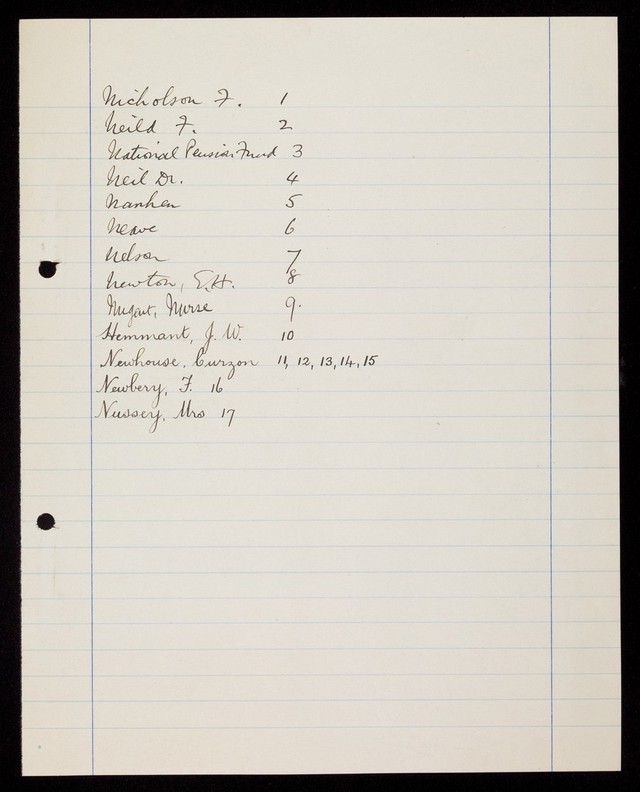 Nicholson F. 1
Neild F. 2
National Pension Fund 3
Neil Dr. 4
5
Neave 6
Nelson 7
Newton, E.H. 8
Nugent, Nurse 9.
Hemmant, J. W. 10
Newhouse, Curzon 11, 12, 13, 14, 15
Newbery, F. 16
Nussey, Mrs 17